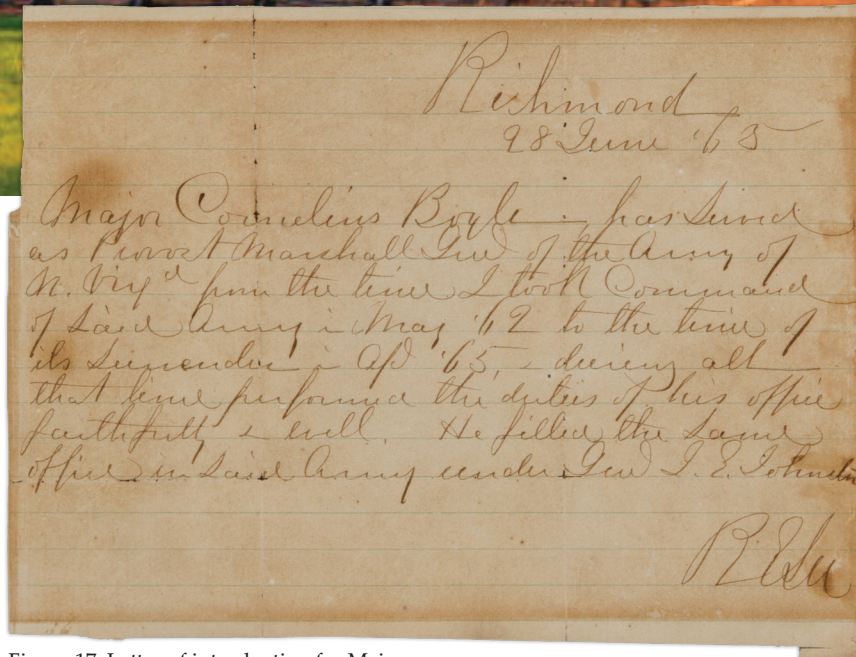 Richmond
28 June '65
Major Cornelius Boyle, has served
as Provost Marshall Genl of the Army of
N. Virga from the time I took Command
of said Army in May '62 to the time of
its surrender in Apl '65, & during all
that time performed the duties of his office
faithfully & well. He filled the same
office in said Army under Genl J. E. Johnston
R E Lee